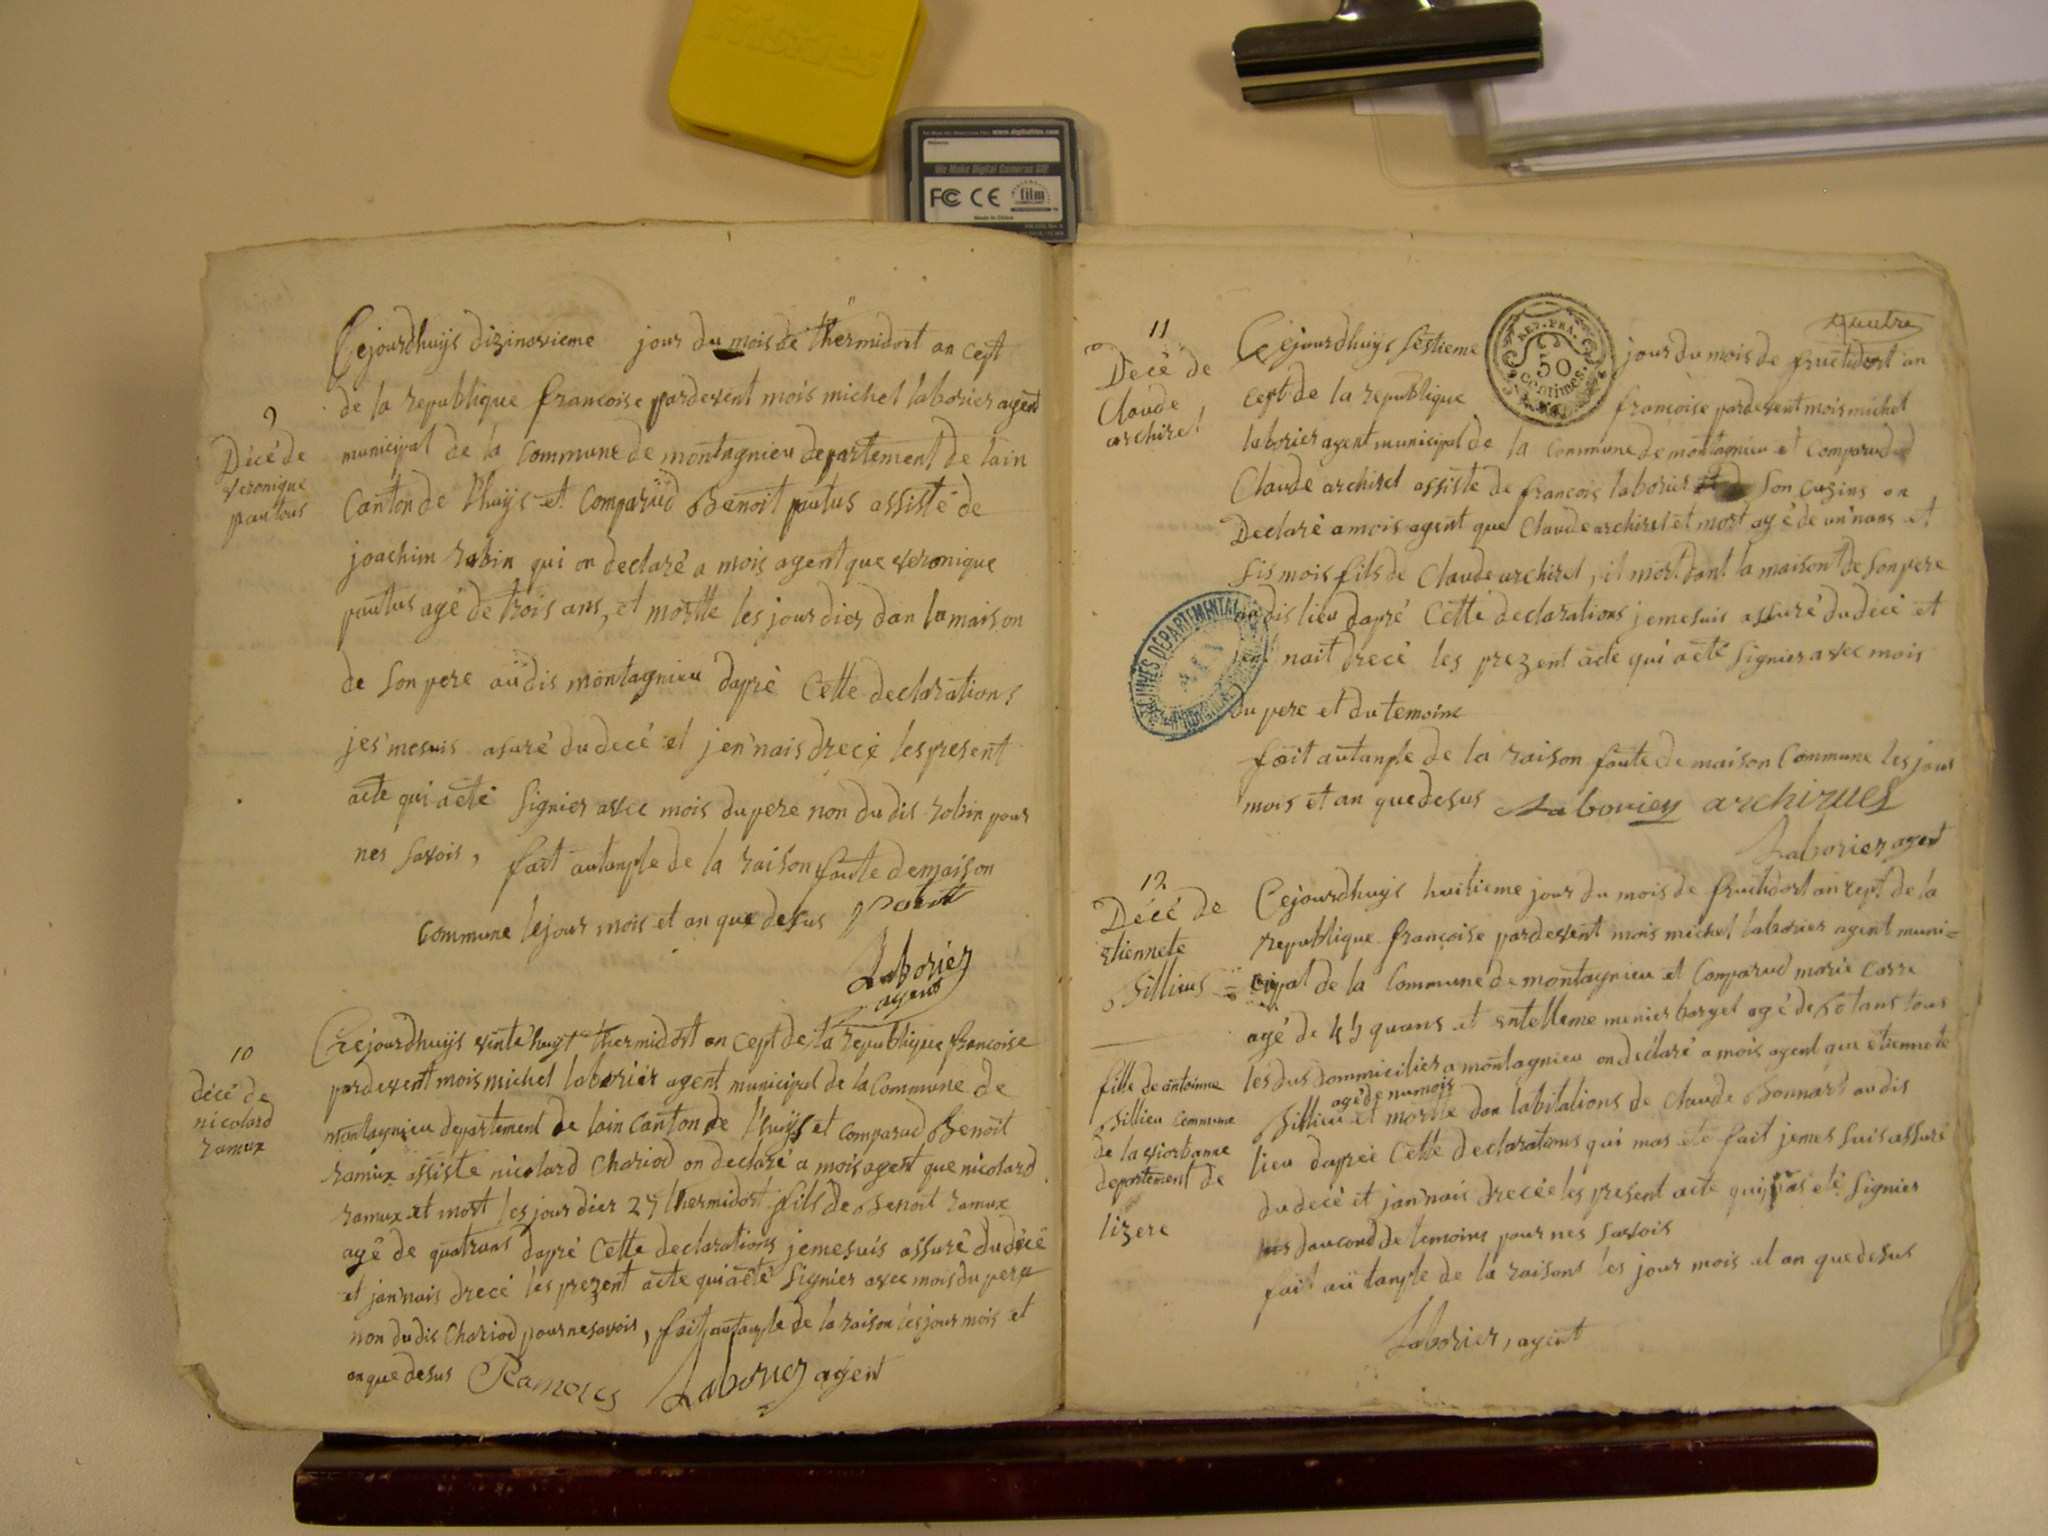 www.digitalfilm.com
We Make Digital Cameras GO!
FC CE film
Made in China
9
Décé de
veronique
pautus
Cejourdhuys dizinovieme jour du mois de thermidort an cept
de la republique francoise pardevent mois michel laborier agent
municipal de la Commune de montagnieu departement de lain
Canton de lhuys et Comparüd Benoit pautus assisté de
joachim robin qui on declaré a mois agent que veronique
pautus agé de trois ans, et mortte les jour dier dan la maison
de son pere aüdis montagnieu dapré Cette declarations
jes mesuis asuré du decé et jen'nais drecé les present
acte qui acté signier avec mois du pere non du dis robin pour
nes savois, fait autanple de la raison faute demaison
Commune lejour mois et an que desus
Laborier
agent
10
décé de
nicolard
ramux
Cejourdhuys vinte huyt thermidort an cept de la republique francoise
pardevent mois michel laborier agent municipal de la Commune de
montagnieu departement de lain Canton de lhuys et Comparud Benoit
ramux assiste nicolard Chariod on declaré a mois agent que nicolard
ramux et mort les jour dier 27 thermidort fils de Benoit ramux
agé de quatrans dapré Cette declarations jemesuis assuré du décé
et jan'nais drecé les prezent acte qui acté signier avec mois du pere
non du dis Chariod pour ne savois, fait autanple de la raison les jour mois et
an que desus Ramoies Laborier agent
11
Decé de
Claude
archirel
Cejourdhuys sestieme jour du mois de fructidort an
RÉP. FRA.
50
centimes.
cept de la republique francoise pardevent mois michel
laborier agent municipal de la Commune de montagnieu et Comparud
Claude archirel assisté de francois laborier son Cuzins on
Declaré a mois agent que Claude archirel et mort agé de un'nans et
sis mois fils de Claude archirel, il mort dant la maisont de son pere
au dis lieu dapré Cette declarations jemesuis assuré du decé et
jen nait drecé les prezent acte qui acté signier avec mois
du pere et du temoins
ARCHIVES DÉPARTEMENTALES
AIN
fait autanple de la raison faute de maison Commune les jour
mois et an que desus Laboriey archiruel
Laborier agent
12
Décé de
etiennete
Sillieus
fille de antoinne
Sillieu Commune
de la viorbanne
departement de
lizere
Cejourdhuys huitieme jour du mois de fructidort an cept de la
republique françoise pardevent mois michel laborier agent muni=
cipal de la Commune de montagnieu et Comparud marie Carre
agé de 45 quans et entelleme menier bargel agé de 60 tans tous
les dus dommicilier a montagnieu on déclaré a mois agent que etiennete
agé de numois
Sillieu et mortte dan labitations de Claude Bonnard audis
lieu dapreé Cette declarations qui mas eté fait jemes suis assuré
du decé et jan'nais drecée les present acte qui pas eté signier
nis daucond de temoins pour nes savois
fait aü tanple de la raisons les jour mois et an que desus
Laborier, agent